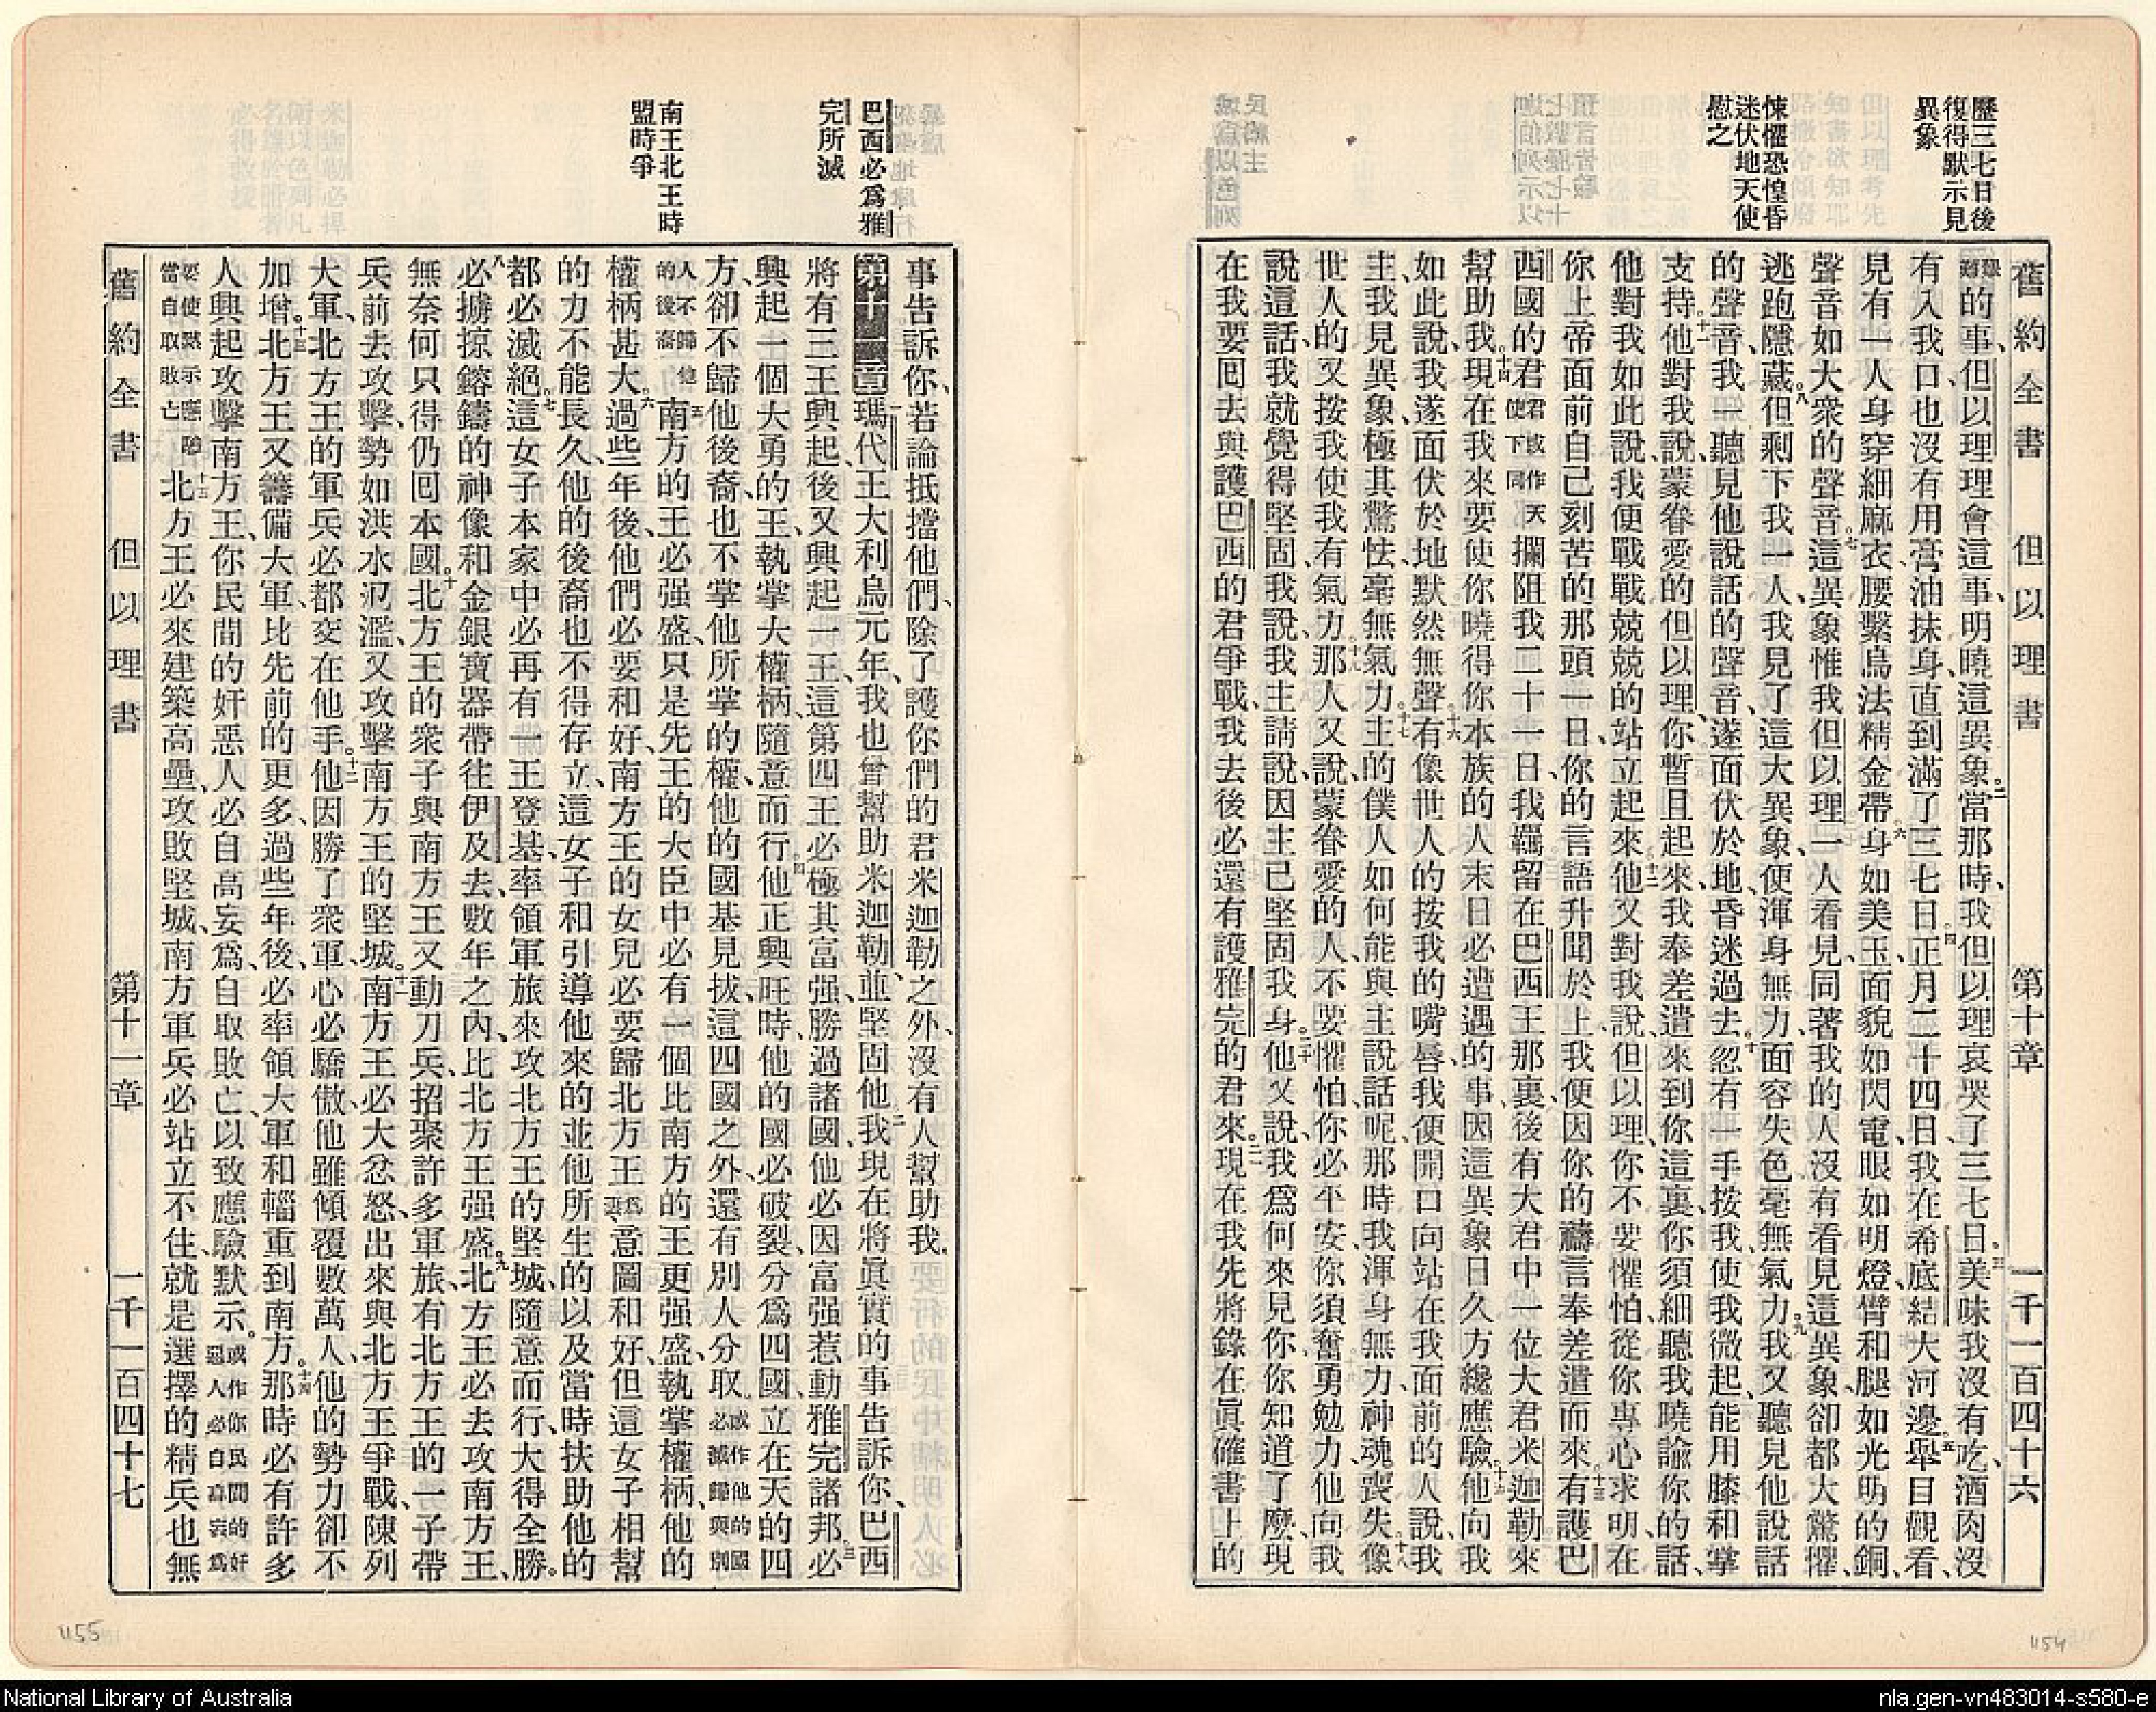 歷三七日後
復得默示見
異象
悚懼恐惶昏
迷伏地天使
慰之
舊約全書 但以理書 第十章 一千一百四十六
的事、但以理理會這事、明曉這異象。二當那時、我但以理哀哭了三七日。三美味我沒有吃、酒肉沒
有入我口、也沒有用膏油抹身、直到滿了三七日。四正月二十四日、我在希底結大河邊。五舉目觀看、
見有一人、身穿細麻衣、腰繫烏法精金帶。六身如美玉、面貌如閃電、眼如明燈、臂和腿如光明的銅、
聲音如大衆的聲音。七這異象惟我但以理一人看見、同著我的人沒有看見這異象、卻都大驚懼、
逃跑隱藏。八但剩下我一人、我見了這大異象、便渾身無力、面容失色、毫無氣力。九我又聽見他說話
的聲音、我一聽見他說話的聲音、遂面伏於地、昏迷過去。十忽有一手按我、使我微起、能用膝和掌
支持。十一他對我說、蒙眷愛的但以理、你暫且起來、我奉差遣來到你這裏、你須細聽我曉諭你的話、
他對我如此說、我便戰戰兢兢的站立起來。十二他又對我說、但以理、你不要懼怕、從你專心求明、在
你上帝面前自己刻苦的那頭一日、你的言語升聞於上、我便因你的禱言奉差遣而來。十三有護巴
西國的君君或作天使下同攔阻我二十一日、我羈留在巴西王那裏、後有大君中一位大君米迦勒來
幫助我。十四現在我來、要使你曉得你本族的人末日必遭遇的事、因這異象日久方纔應驗。十五他向我
如此說、我遂面伏於地、默然無聲。十六有像世人的按我的嘴唇、我便開口向站在我面前的人說、我
主、我見異象、極其驚怯、毫無氣力。十七主的僕人如何能與主說話呢、那時我渾身無力、神魂喪失。十八像
世人的又按我、使我有氣力。十九那人又說、蒙眷愛的人、不要懼怕、你必平安、你須奮勇勉力、他向我
說這話、我就覺得堅固、我說、我主請說、因主已堅固我身。二十他又說、我爲何來見你、你知道了麽、現
在我要囘去與護巴西的君爭戰、我去後必還有護雅完的君來。二一現在我先將錄在眞確書上的
巴西必爲雅
完所滅
南王北王時
盟時爭
事告訴你、若論抵擋他們、除了護你們的君米迦勒之外、沒有人幫助我、
第十一章一瑪代王大利烏元年、我也曾幫助米迦勒、並堅固他。二我現在將眞實的事告訴你、巴西
將有三王興起、後又興起一王、這第四王必極其富强、勝過諸國、他必因富强惹動雅完諸邦。三必
興起一個大勇的王、執掌大權柄、隨意而行。四他正興旺時、他的國必破裂、分爲四國、立在天的四
方、卻不歸他後裔、也不掌他所掌的權、他的國基見拔、這四國之外、還有別人分取。或作他的國必滅歸與別
人不歸他的後裔五南方的王必强盛、只是先王的大臣中必有一個比南方的王更强盛、執掌權柄、他的
權柄甚大。六過些年後、他們必要和好、南方王的女兒必要歸北方王爲妃意圖和好、但這女子相幫
的力不能長久、他的後裔也不得存立、這女子和引導他來的、並他所生的、以及當時扶助他的、
都必滅絕。七這女子本家中必再有一王登基、率領軍旅、來攻北方王的堅城、隨意而行、大得全勝。
八必擄掠鎔鑄的神像、和金銀寶器、帶往伊及去、數年之內、比北方王强盛。九北方王必去攻南方王、
無奈何只得仍囘本國。十北方王的衆子與南方王又動刀兵、招聚許多軍旅、有北方王的一子帶
兵前去攻擊、勢如洪水氾濫、又攻擊南方王的堅城。十一南方王必大忿怒、出來與北方王爭戰、陳列
大軍、北方王的軍兵必都交在他手。十二他因勝了衆軍、心必驕傲、他雖傾覆數萬人、他的勢力卻不
加增。十三北方王又籌備大軍、比先前的更多、過些年後、必率領大軍和輜重到南方。十四那時必有許多
人興起攻擊南方王、你民間的奸惡人必自高妄爲、自取敗亡、以致應驗默示。或作你民間的奸惡人必自高妄爲
要使默示應驗當自取敗亡十五北方王必來建築高壘、攻敗堅城、南方軍兵必站立不住、就是選擇的精兵也無
舊約全書 但以理書 第十一章 一千一百四十七
1155
1154
National Library of Australia
nla.gen-vn483014-s580-e